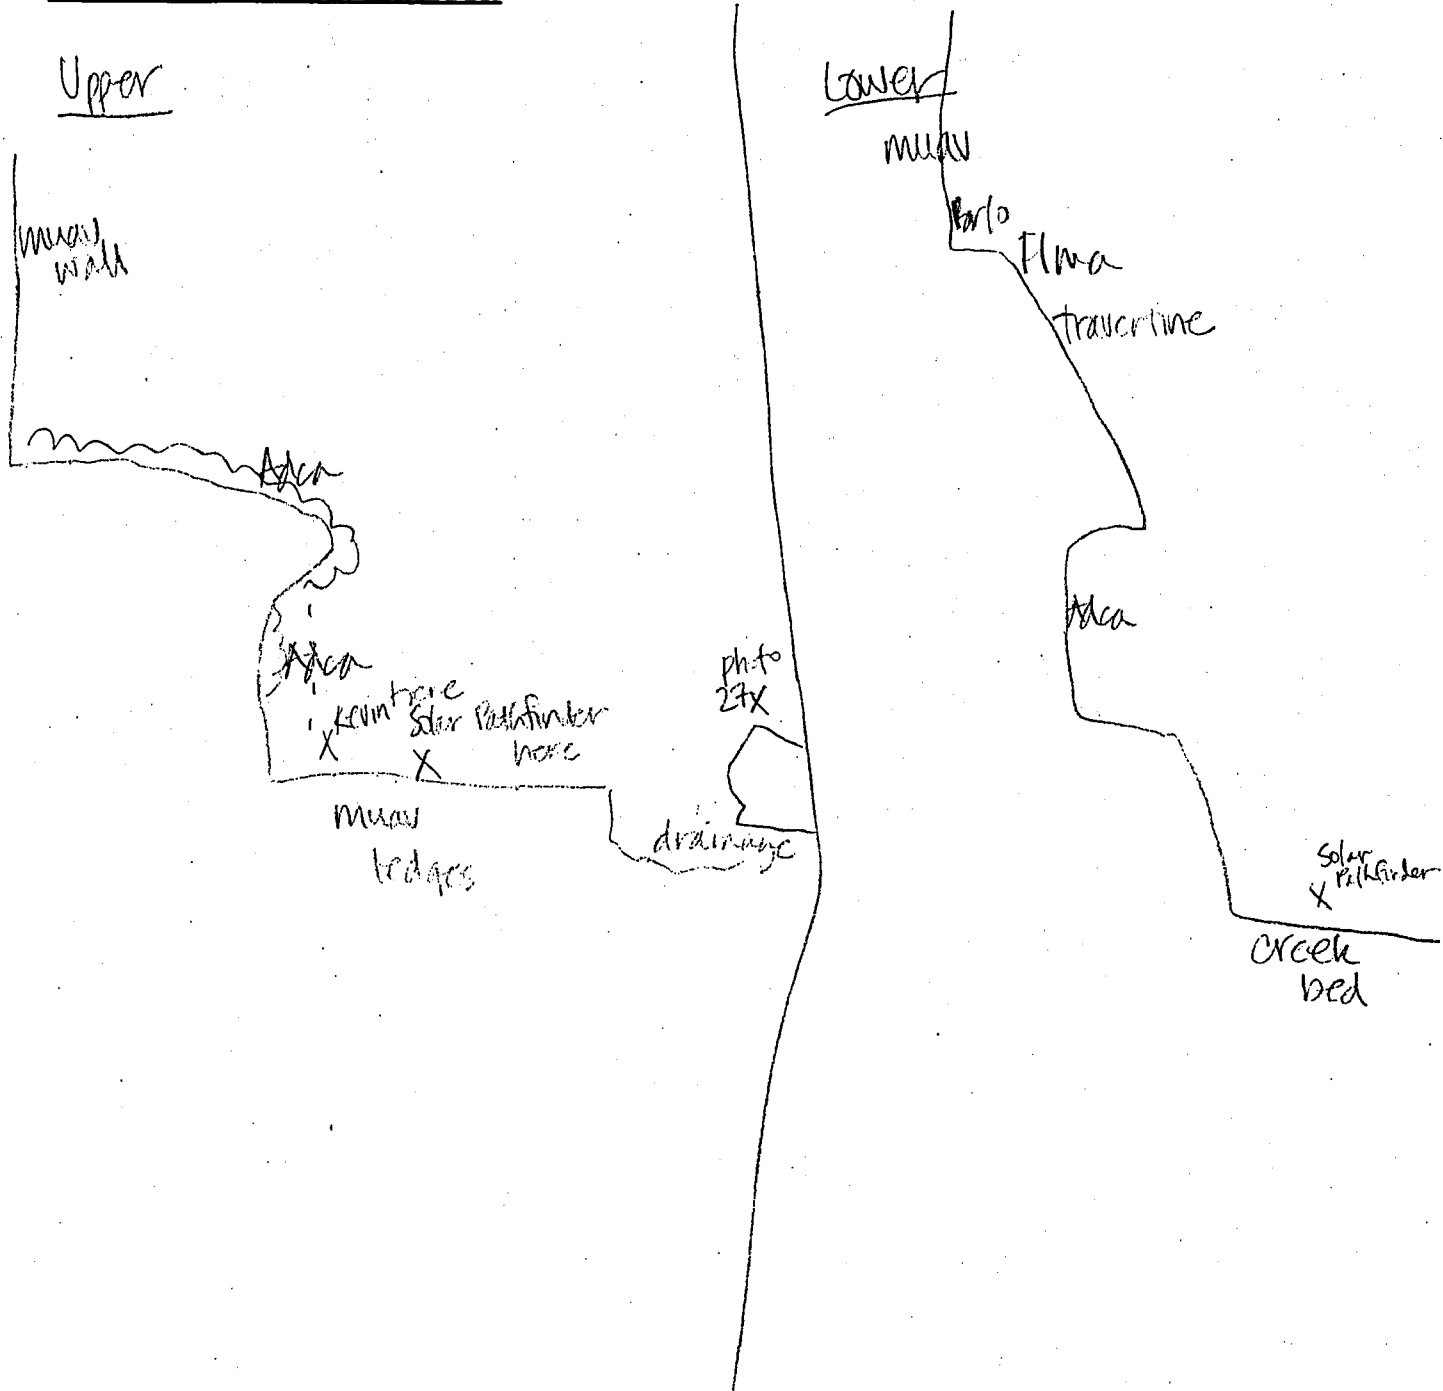 Upper
muav
wall
Adca
Adca
Kevin here
Solar Pathfinder
here
X
X
muav
ledges
drainage
photo
27X
Lower
muav
Flma
travertine
Adca
Solar
Pathfinder
X
creek
bed